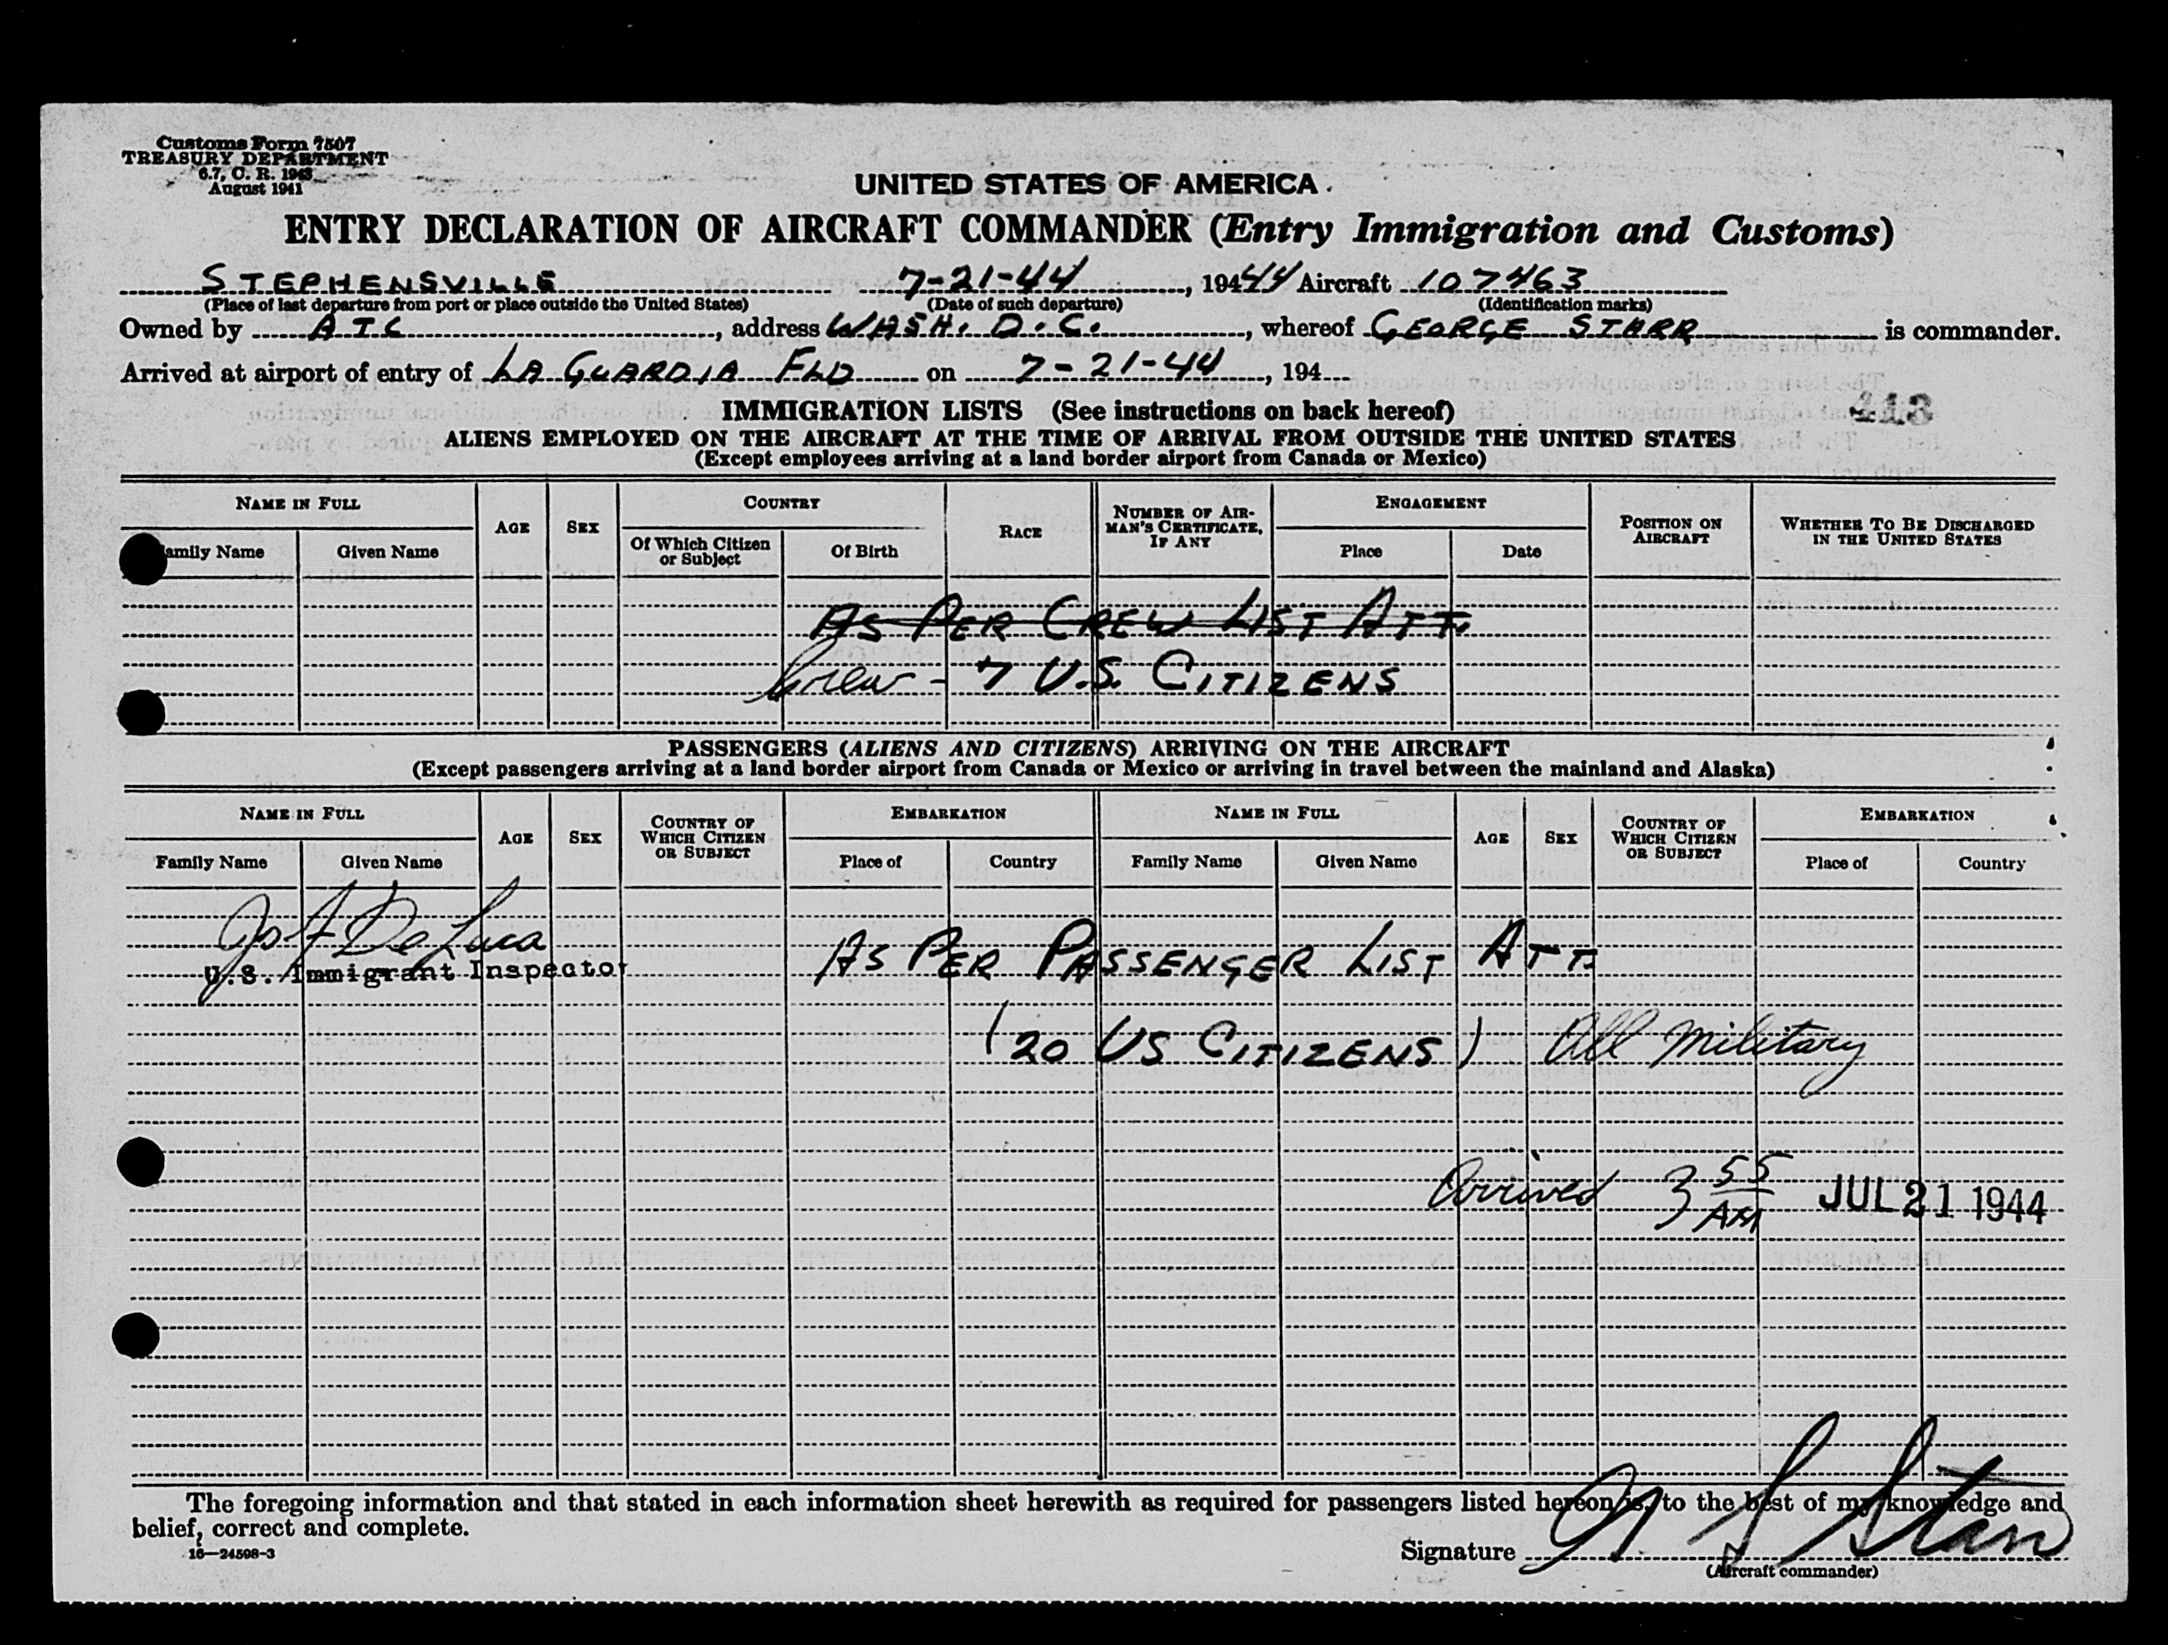 Customs Form 7507
TREASURY DEPARTMENT
6.7, C. R. 1943
August 1941
UNITED STATES OF AMERICA
ENTRY DECLARATION OF AIRCRAFT COMMANDER (Entry Immigration and Customs)
STEPHENSVILLE 7-21-44, 19444 Aircraft 107463
(Place of last departure from port or place outside the United States) (Date of such departure) (Identification marks)
Owned by ATC, address WASH. D.C., whereof GEORGE STARR is commander.
Arrived at airport of entry of LA GUARDIA FLD on 7-21-44, 194
IMMIGRATION LISTS (See instructions on back hereof)
413
ALIENS EMPLOYED ON THE AIRCRAFT AT THE TIME OF ARRIVAL FROM OUTSIDE THE UNITED STATES
(Except employees arriving at a land border airport from Canada or Mexico)
NAME IN FULL AGE SEX COUNTRY RACE NUMBER OF AIRMAN'S CERTIFICATE, IF ANY ENGAGEMENT POSITION ON AIRCRAFT WHETHER TO BE DISCHARGED IN THE UNITED STATES
Family Name Given Name Of Which Citizen or Subject Of Birth Place Date
AS PER CREW LIST ATT.
Crew - 7 U.S. CITIZENS
PASSENGERS (ALIENS AND CITIZENS) ARRIVING ON THE AIRCRAFT
(Except passengers arriving at a land border airport from Canada or Mexico or arriving in travel between the mainland and Alaska)
NAME IN FULL AGE SEX COUNTRY OF WHICH CITIZEN OR SUBJECT EMBARKATION NAME IN FULL AGE SEX COUNTRY OF WHICH CITIZEN OR SUBJECT EMBARKATION
Family Name Given Name Place of Country Family Name Given Name Place of Country
Jos A De Luca
U.S. Immigrant Inspector
AS PER PASSENGER LIST ATT.
(20 US CITIZENS) All Military
Arrived 3 55 AM JUL 21 1944
The foregoing information and that stated in each information sheet herewith as required for passengers listed hereon is, to the best of my knowledge and
belief, correct and complete.
16—24598-3
Signature G S Starr
(Aircraft commander)